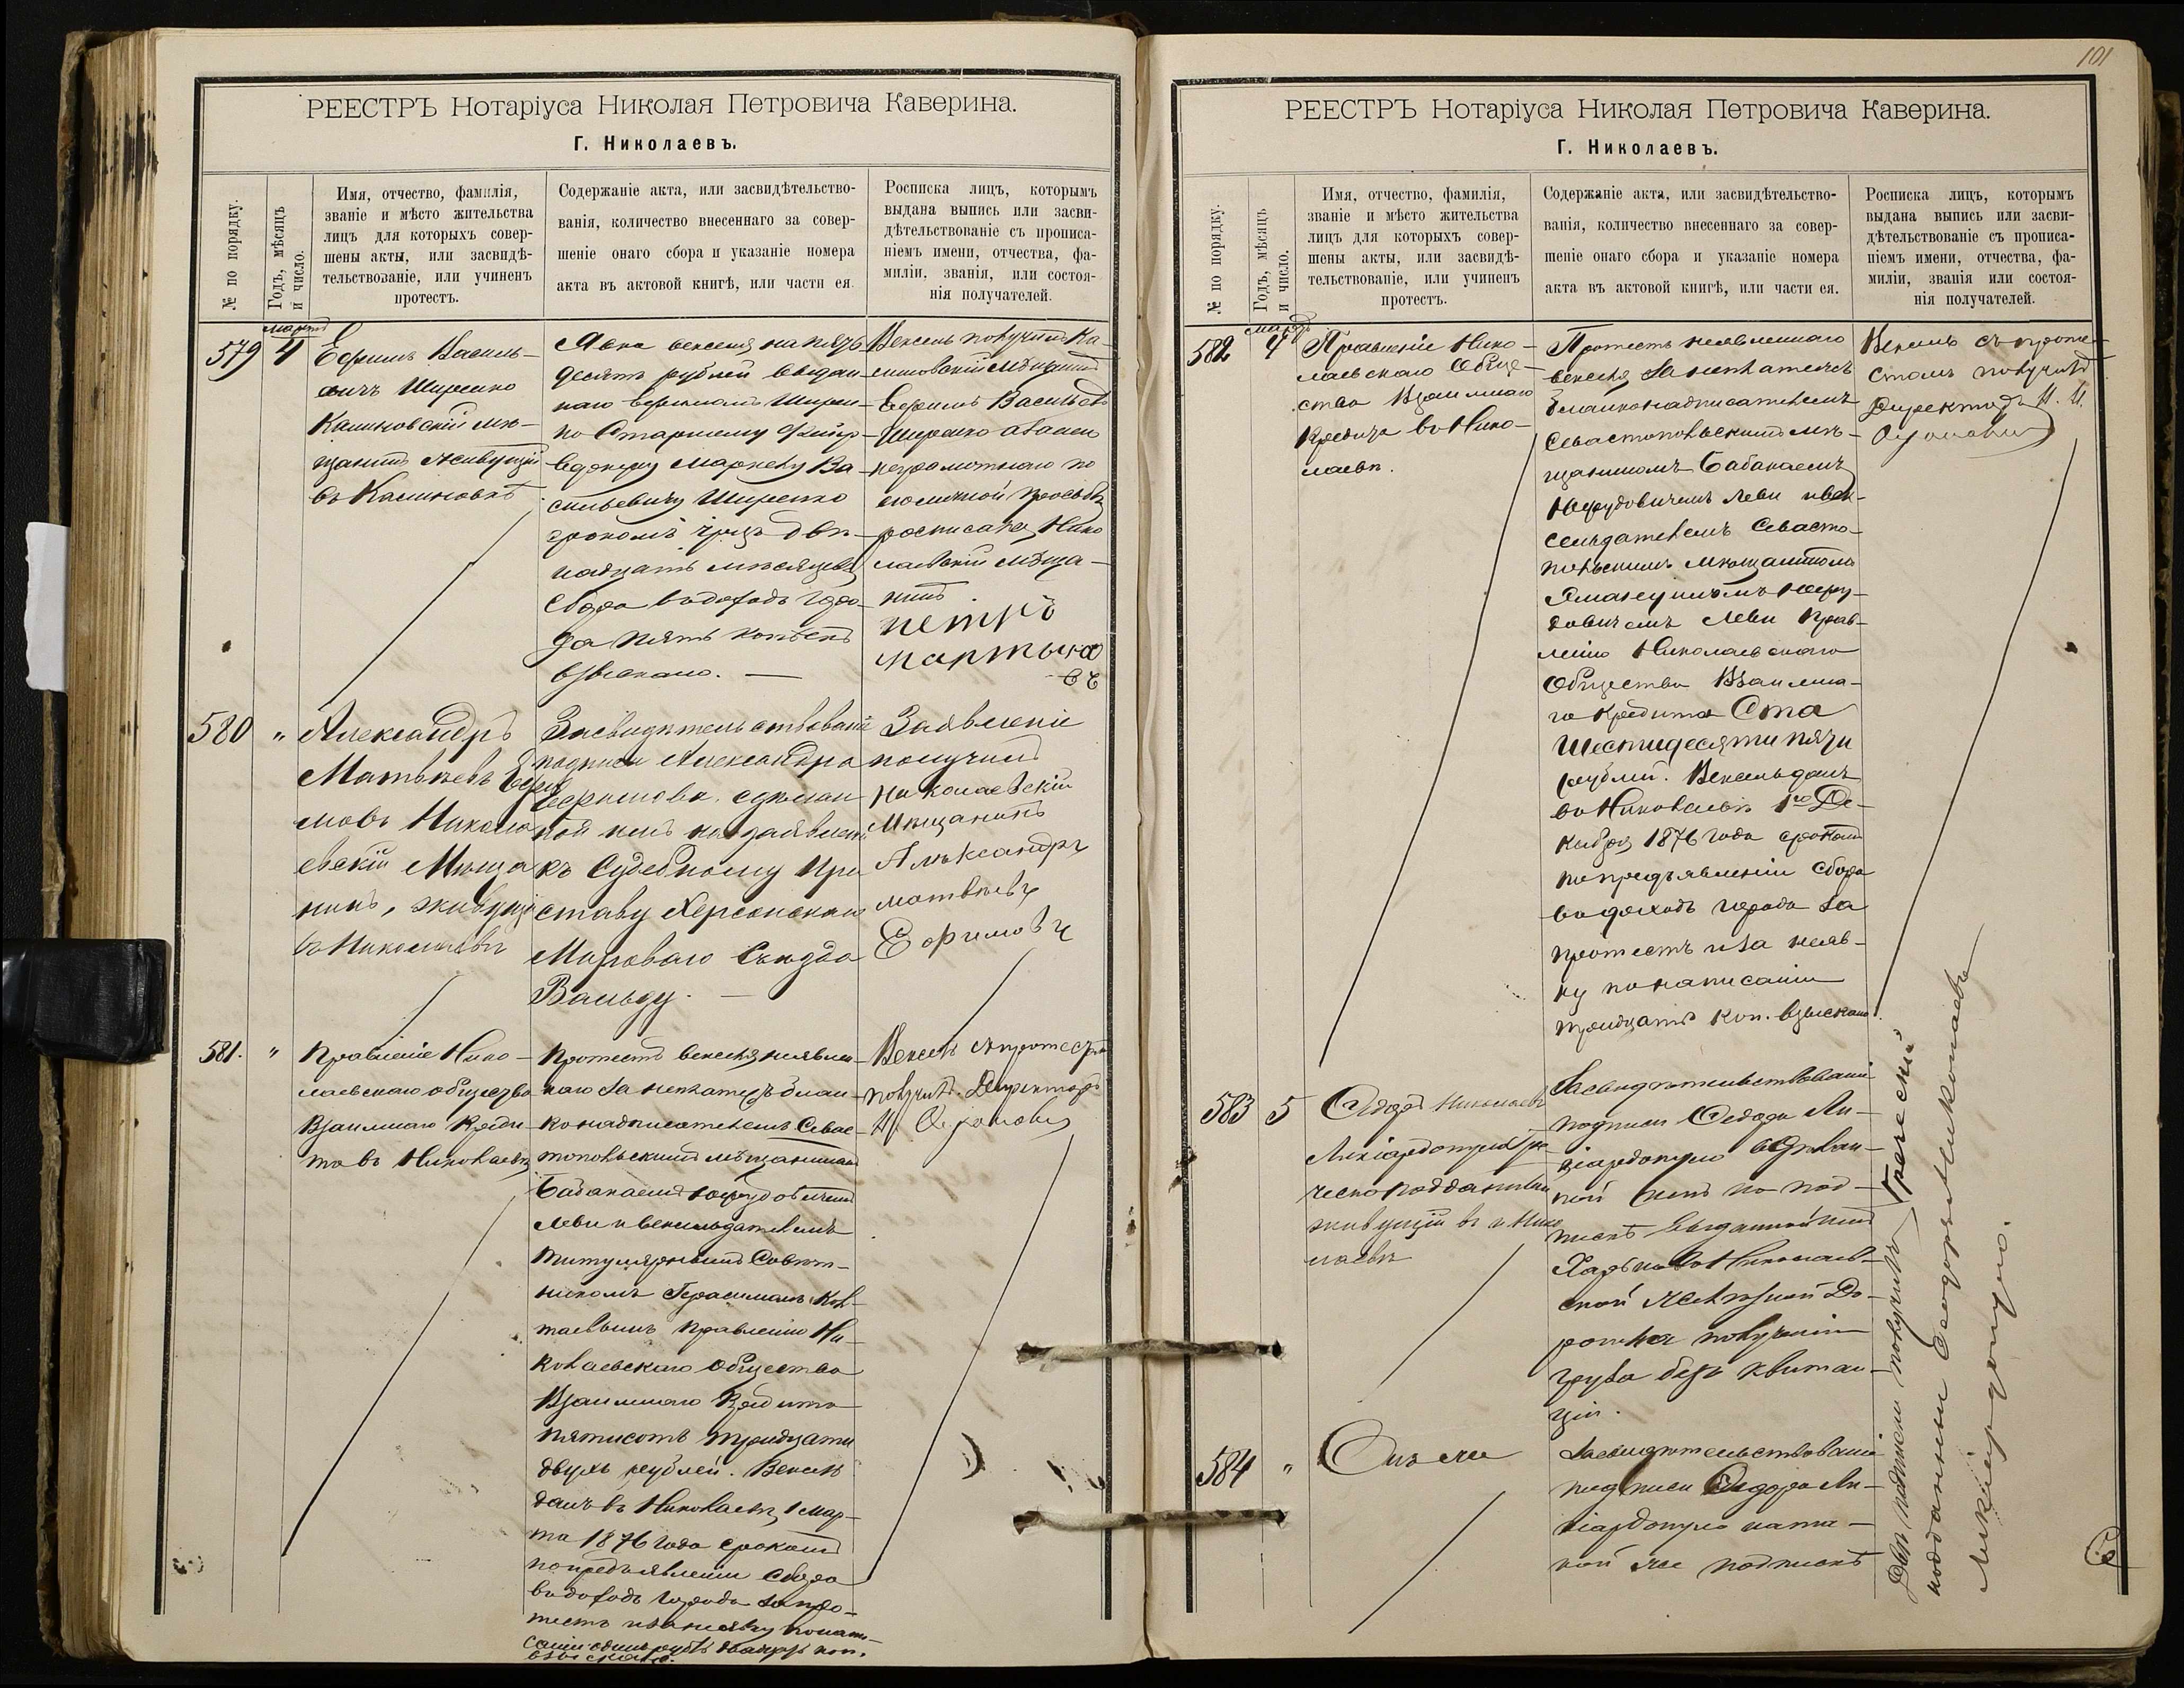 РЕЕСТРЪ Нотаріуса Николая Петровича Каверина.
Г. Николаевъ.
№ по порядку.
Годъ, мѣсяцъ
и число.
Имя, отчество, фамилія,
званіе и мѣсто жительства
лицъ для которыхъ совер-
шены акты, или засвидѣ-
тельствованіе, или учиненъ
протестъ.
Содержаніе акта, или засвидѣтельство-
ванія, количество внесеннаго за совер-
шеніе онаго сбора и указаніе номера
акта въ актовой книгѣ, или части ея.
Росписка лицъ, которымъ
выдана выпись или засви-
дѣтельствованіе съ прописа-
ніемъ имени, отчества, фа-
миліи, званія, или состоя-
нія получателей.
579
мартъ
4
Ефимъ Василь-
евичъ Ширенко
Калиновскій мѣ-
щанинъ живущій
въ Калиновкѣ
Явка векселя на пять
десятъ рублей выдан-
наго Ефимомъ Ширен-
ко
Василь-
евичу Ширенко
срокомъ чрезъ двѣ-
надцать мѣсяцевъ
Сбора въ доходъ горо-
да пять копѣекъ
взыскано. —
Вексель получилъ Ка-
линовскій мѣщанинъ
Ефимъ Васильевъ
Ширенко а за него
неграмотнаго по
его личной просьбѣ
росписался Нико
лаевскій мѣща-
нинъ
петръ
мартыно
въ
580
"
Александръ
Матвѣевъ Ефи
мовъ Никола
евскій Мѣща
нинъ, живущій
въ Николаевѣ
Засвидѣтельствованіе
подписи Александра
Ефимова, сдѣлан
ной имъ на заявленіи
къ Судебному При
ставу Херсонскаго
Мироваго Съѣзда
Вальду. —
Заявленіе
получилъ
николаевскій
Мѣщанинъ
Алѣксандръ
матвѣевъ
Ефимовъ
581.
"
Правленіе Нико-
лаевскаго общества
Взаимнаго Креди-
та въ Николаевѣ
Протестъ векселя неявлен-
наго за неплатежъ блан-
конадписателемъ Севас-
топольскимъ мѣщаниномъ
Бабакаемъ Юфудовичемъ
Леви и векселедателемъ
Титулярнымъ Совѣт-
никомъ Герасимомъ Кол-
таевымъ Правленію Ни-
колаевскаго Общества
Взаимнаго Кредита
пятисотъ тридцати
двухъ рублей. Вексель
данъ въ Николаевѣ 1 мар-
та 1876 года срокомъ
по предъявленіи Сбора
въ доходъ города за про-
тестъ и за неявку по напи-
саніи одинъ рубль двадцать коп.
взыскано.
Вексель съ протестомъ
получилъ. Директоръ
101
РЕЕСТРЪ Нотаріуса Николая Петровича Каверина.
Г. Николаевъ.
№ по порядку.
Годъ, мѣсяцъ
и число.
Имя, отчество, фамилія,
званіе и мѣсто жительства
лицъ для которыхъ совер-
шены акты, или засвидѣ-
тельствованіе, или учиненъ
протестъ.
Содержаніе акта, или засвидѣтельство-
ванія, количество внесеннаго за совер-
шеніе онаго сбора и указаніе номера
акта въ актовой книгѣ, или части ея.
Росписка лицъ, которымъ
выдана выпись или засви-
дѣтельствованіе съ прописа-
ніемъ имени, отчества, фа-
миліи, званія или состоя-
нія получателей.
582
мартъ
4
Правленіе Нико-
лаевскаго Обще-
ства Взаимнаго
Кредита въ Нико-
лаевѣ.
Протестъ неявленнаго
векселя за неплатежъ
бланконадписателемъ
Севастопольскимъ мѣ-
щаниномъ Бабакаемъ
Юфудовичемъ Леви и век-
селедателемъ Севасто-
польскимъ мѣщаниномъ
Юфу-
довичемъ Леви Прав-
ленію Николаевскаго
Общества Взаимна-
го Кредита Ста
Шестидесяти пяти
рублей. Вексель данъ
въ Николаевѣ 1го Де-
кабря 1876 года срокомъ
по предъявленіи Сбора
въ доходъ города за
протестъ и за неяв-
ку по написаніи
тридцать коп. взыскано.
Вексель съ проте-
стомъ получилъ
Директоръ
583
5
Федоръ Николаевъ
Ликіардопуло Гре-
ческо поддан
живущій въ г. Нико
лаевѣ
Засвидѣтельствованіе
подписи Федора Ли-
кіардопуло сдѣлан-
ной имъ на под-
пискѣ выданной имъ
Харьково Николаев-
ской желѣзной До-
рогѣ на полученіе
груза безъ квитан-
ціи.
584
"
Онъ же
Засвидѣтельствованіе
подписи Федора Ли-
кіардопуло на та-
кой же подпискѣ
Двѣ подписки получилъ Греческій
подданный Федоръ Николаевъ
Ликіардопуло.